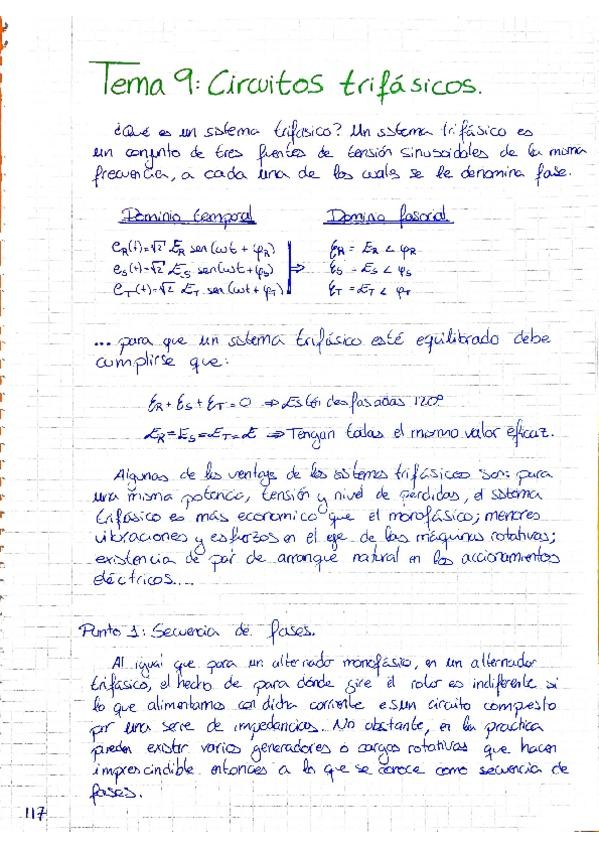 Tema 9: Circuitos trifásicos.
¿Qué es un sistema trifásico? Un sistema trifásico es
un conjunto de tres fuentes de tensión sinusoidales de la misma
frecuencia, a cada una de las cuals se le denomina fase.
Dominio temporal Dominio fasorial
e_R(t)=√2 E_R sen(ωt + φ_R) ε_R = E_R ∠ φ_R
e_S(t)=√2 E_S sen(ωt + φ_S) ⇒ ε_S = E_S ∠ φ_S
e_T(t)=√2 E_T sen(ωt + φ_T) ε_T = E_T ∠ φ_T
... para que un sistema trifásico esté equilibrado debe
cumplirse que:
ε_R + ε_S + ε_T = 0 ⇒ Están desfasadas 120º
E_R = E_S = E_T = E ⇒ Tengan todas el mismo valor eficaz.
Algunas de las ventajas de los sistemas trifásicos son: para
una misma potencia, tensión y nivel de pérdidas, el sistema
trifásico es más economico que el monofásico; menores
vibraciones y esfuerzos en el eje de las máquinas rotativas;
existencia de par de arranque natural en los accionamientos
eléctricos....
Punto 1: Secuencia de fases.
Al igual que para un alternador monofásio, en un alternador
trifásico, el hecho de para dónde gire el rotor es indiferente si
lo que alimentamos con dicha corriente es un circuito compuesto
por una serie de impedancias. No obstante, en la practica
pueden existir varios generadores o cargas rotativas que hacen
imprescindible entonces a lo que se conoce como secuencia de
fases.
117